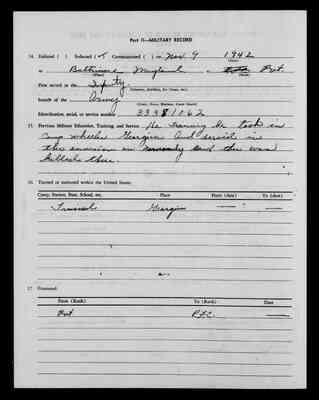 Part II—MILITARY RECORD
14. Enlisted ( ) Inducted (✓) Commissioned ( ) on Nov. 9 1942
(Date)
at Baltimore Maryland as Pvt.
(Place) (Rank)
First served in the Infantry
branch of the Army
(Army, Navy, Marines, Coast Guard)
Identification, serial, or service number 33381162
15. Previous Military Education, Training, and Service He training he took in
Camp Wheeler Georgia And served in
the invasion on Normandy And then was
killed there.
16. Trained or stationed within the United States:
Camp, Station, Base, School, etc. Place From (date) To (date)
Georgia
17. Promoted:
From (Rank) To (Rank) Date
Pvt PFC